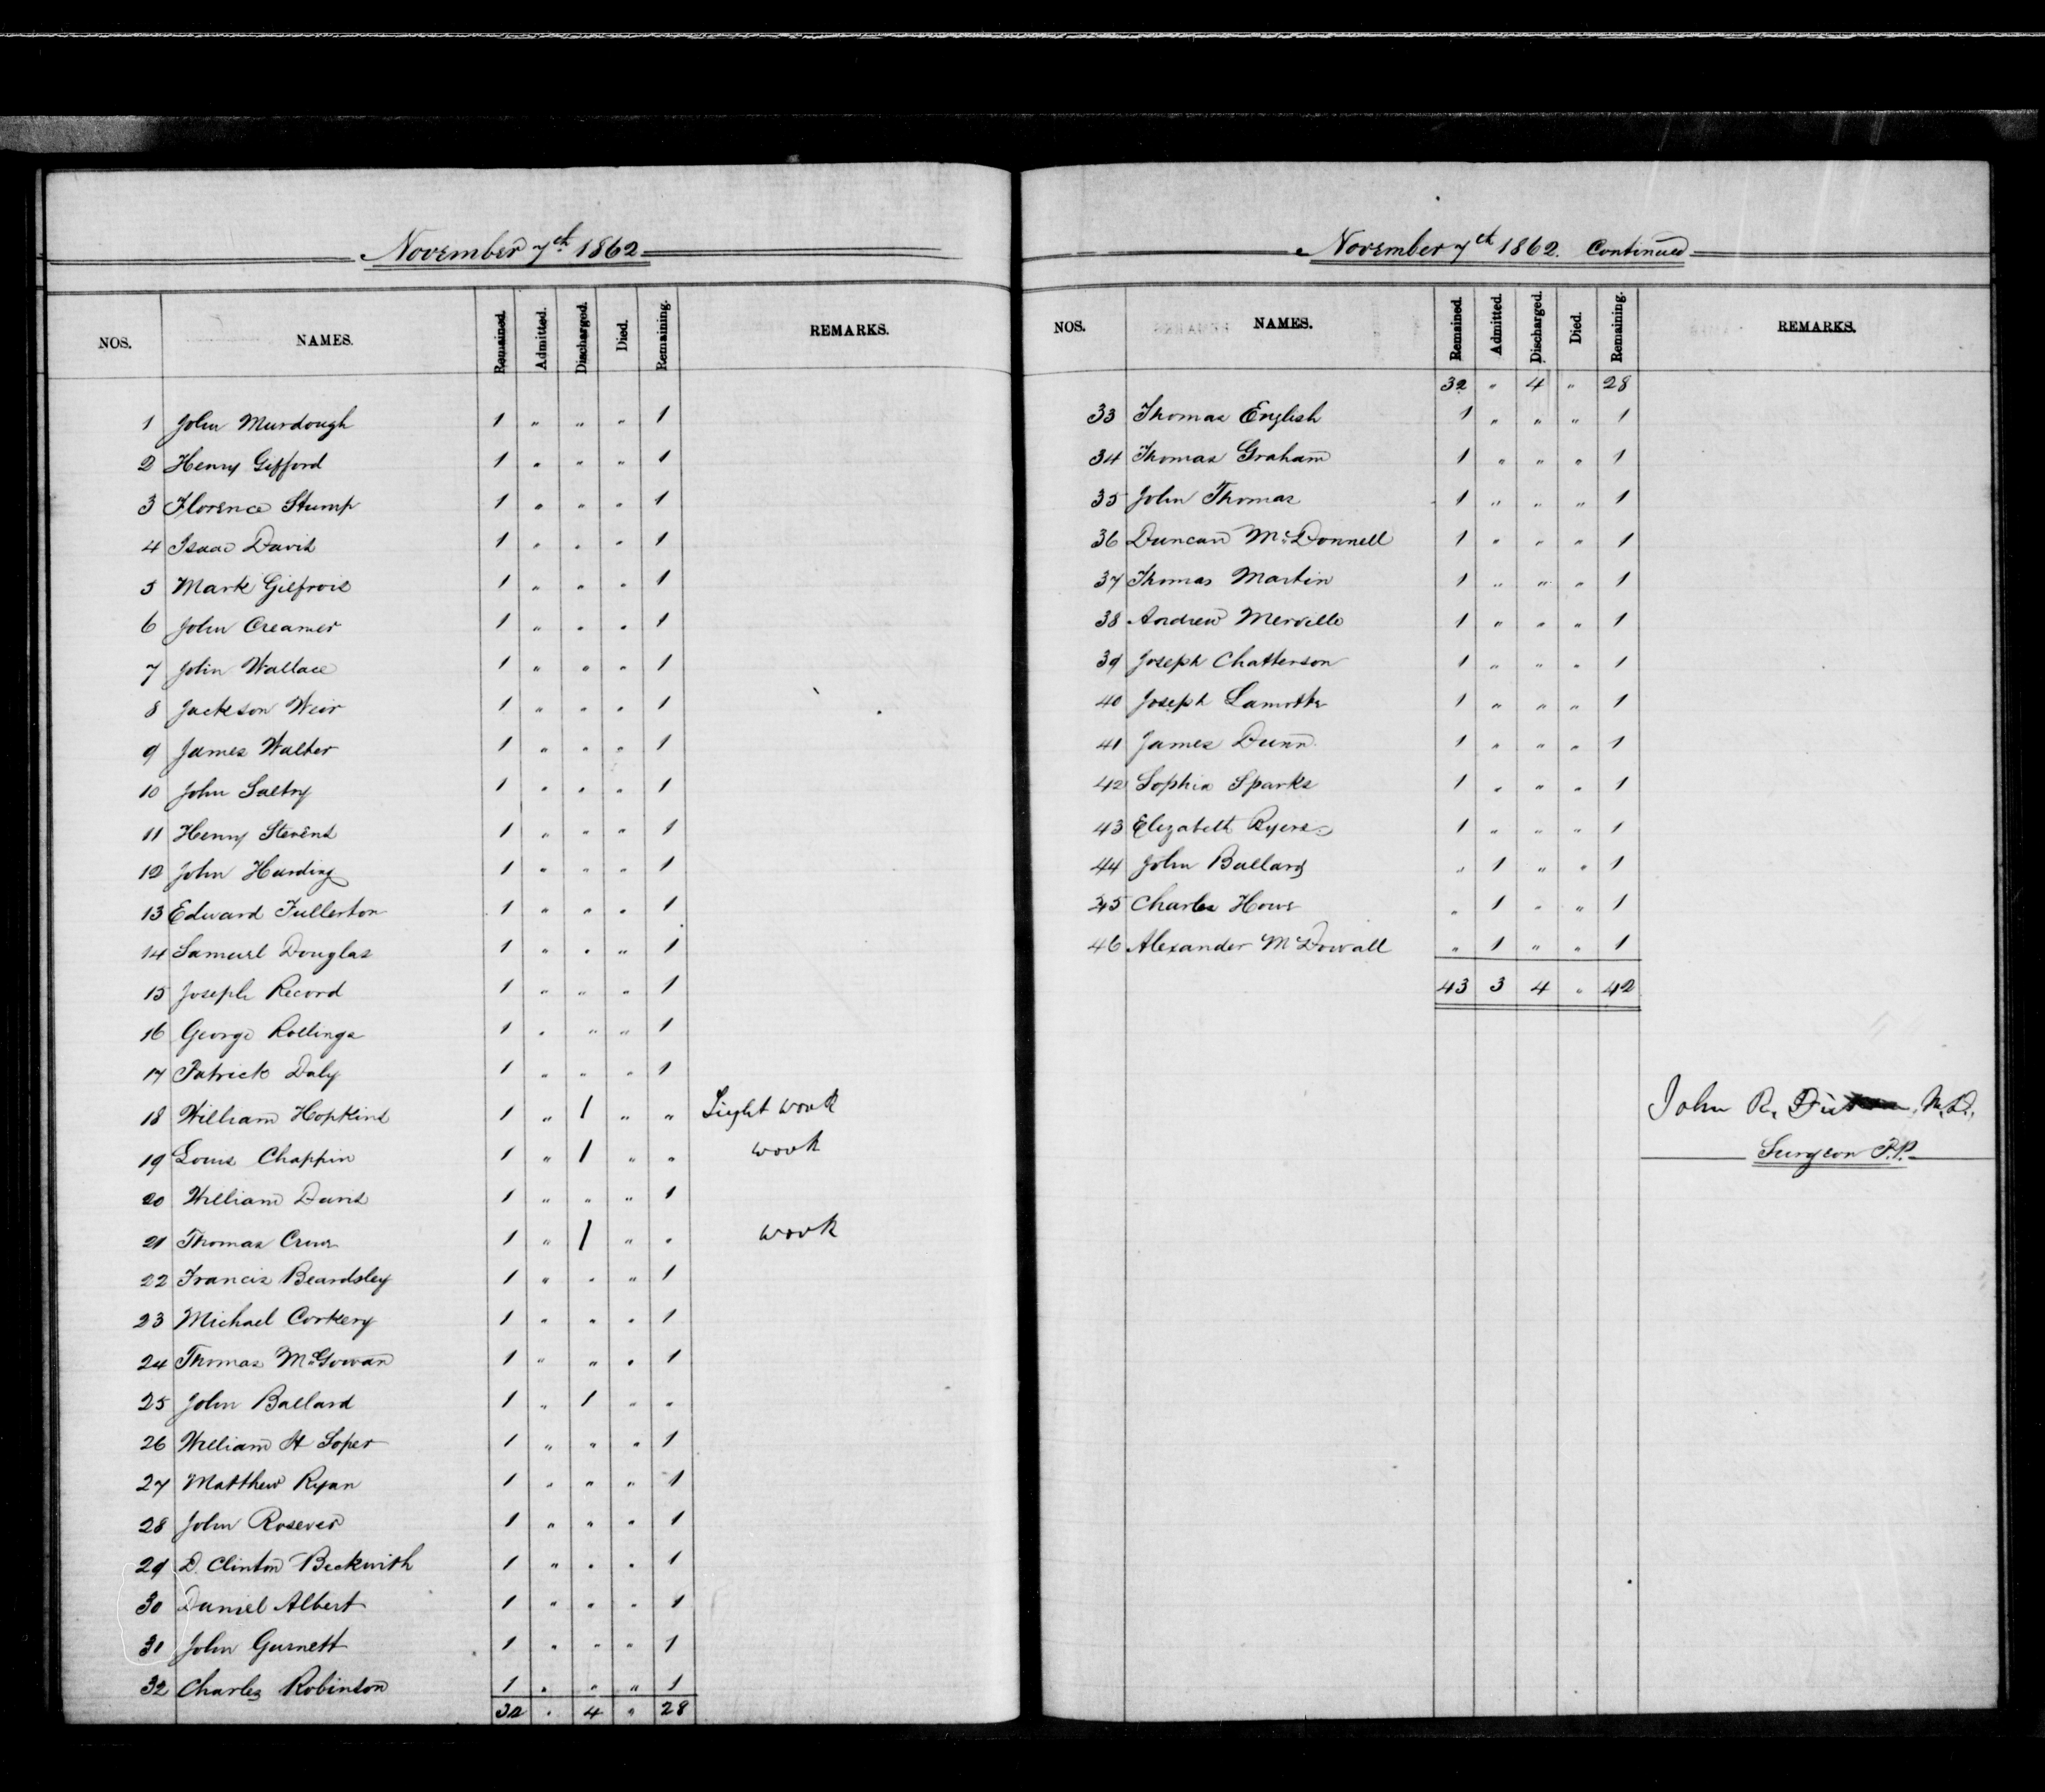 November 7th 1862
NOS. NAMES. Remained. Admitted. Discharged. Died. Remaining. REMARKS.
1 John Murdough 1 " " " 1
2 Henry Gifford 1 " " " 1
3 Florence Stump 1 " " " 1
4 Isaac Davis 1 " " " 1
5 Mark Gilfrois 1 " " " 1
6 John Creamer 1 " " " 1
7 John Wallace 1 " " " 1
8 Jackson Weir 1 " " " 1
9 James Walker 1 " " " 1
10 John Saltry 1 " " " 1
11 Henry Stevens 1 " " " 1
12 John Harding 1 " " " 1
13 Edward Fullerton 1 " " " 1
14 Samuel Douglas 1 " " " 1
15 Joseph Record 1 " " " 1
16 George Rollings 1 " " " 1
17 Patrick Daly 1 " " " 1
18 William Hopkins 1 " 1 " " Light work
19 Louis Chappin 1 " 1 " " work
20 William Davis 1 " " " 1
21 Thomas 1 " 1 " " work
22 Francis Beardsley 1 " " " 1
23 Michael Corkery 1 " " " 1
24 Thomas McGowan 1 " " " 1
25 John Ballard 1 " 1 " "
26 William H Soper 1 " " " 1
27 Matthew Ryan 1 " " " 1
28 John Rosever 1 " " " 1
29 D. Clinton Beckwith 1 " " " 1
30 Daniel Albert 1 " " " 1
31 John Gurnett 1 " " " 1
32 Charles Robinson 1 " " " 1
32 " 4 " 28
November 7th 1862. Continued
NOS. NAMES. Remained. Admitted. Discharged. Died. Remaining. REMARKS.
32 " 4 " 28
33 Thomas English 1 " " " 1
34 Thomas Graham 1 " " " 1
35 John Thomas 1 " " " 1
36 Duncan McDonnell 1 " " " 1
37 Thomas Martin 1 " " " 1
38 Andrew Merville 1 " " " 1
39 Joseph Chatterson 1 " " " 1
40 Joseph Lamotte 1 " " " 1
41 James Dunn 1 " " " 1
42 Sophia Sparks 1 " " " 1
43 Elizabeth Ryers 1 " " " 1
44 John Ballard " 1 " " 1
45 Charles Howe " 1 " " 1
46 Alexander McDowall " 1 " " 1
43 3 4 " 42
John R. M.D.,
Surgeon P.P.